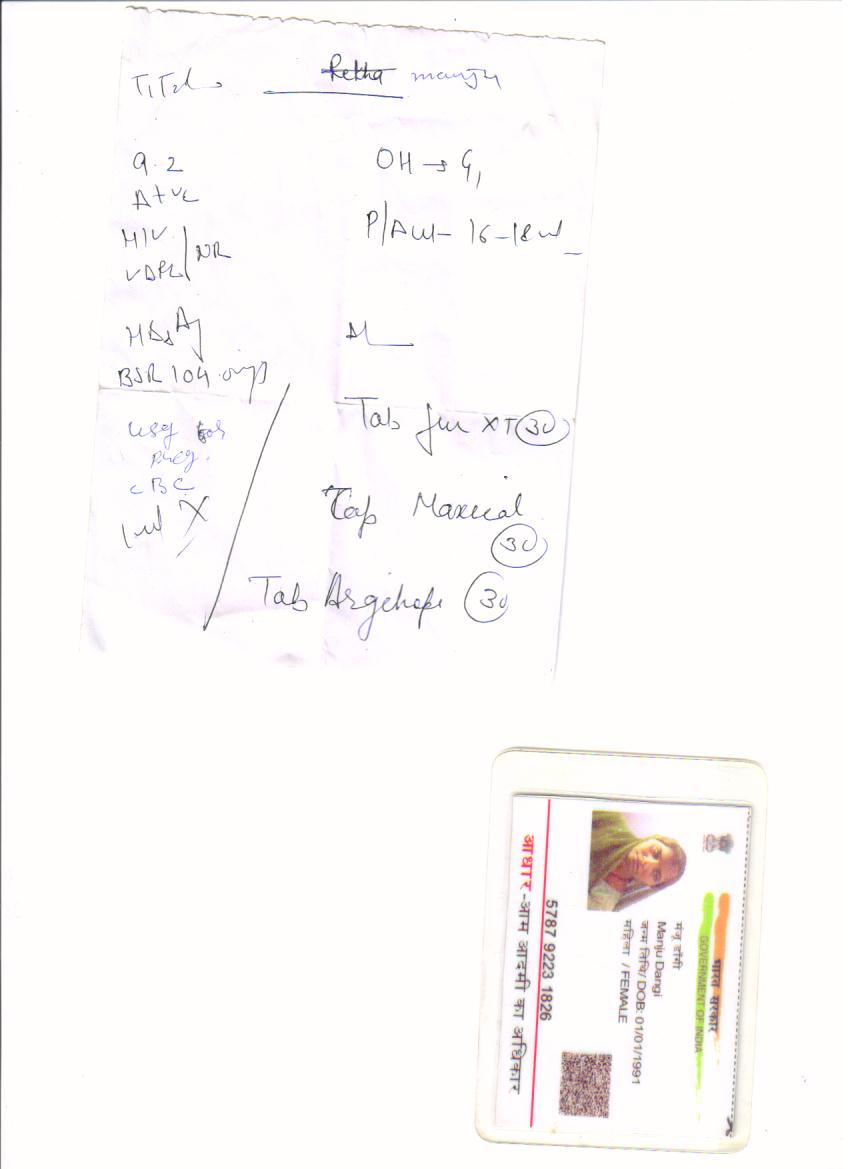 Rekha manju
9.2
A+ve
HIV
VDRL / NR
HBsAg
BSR 104
usg for
preg.
CBC
OH → G1
P/A ut- 16-18 w
Tab XT 30
Cap Maxical
30
Tab 30
भारत सरकार
GOVERNMENT OF INDIA
मंजू डांगी
Manju Dangi
जन्म तिथि/ DOB: 01/01/1991
महिला / FEMALE
5787 9223 1826
आधार-आम आदमी का अधिकार